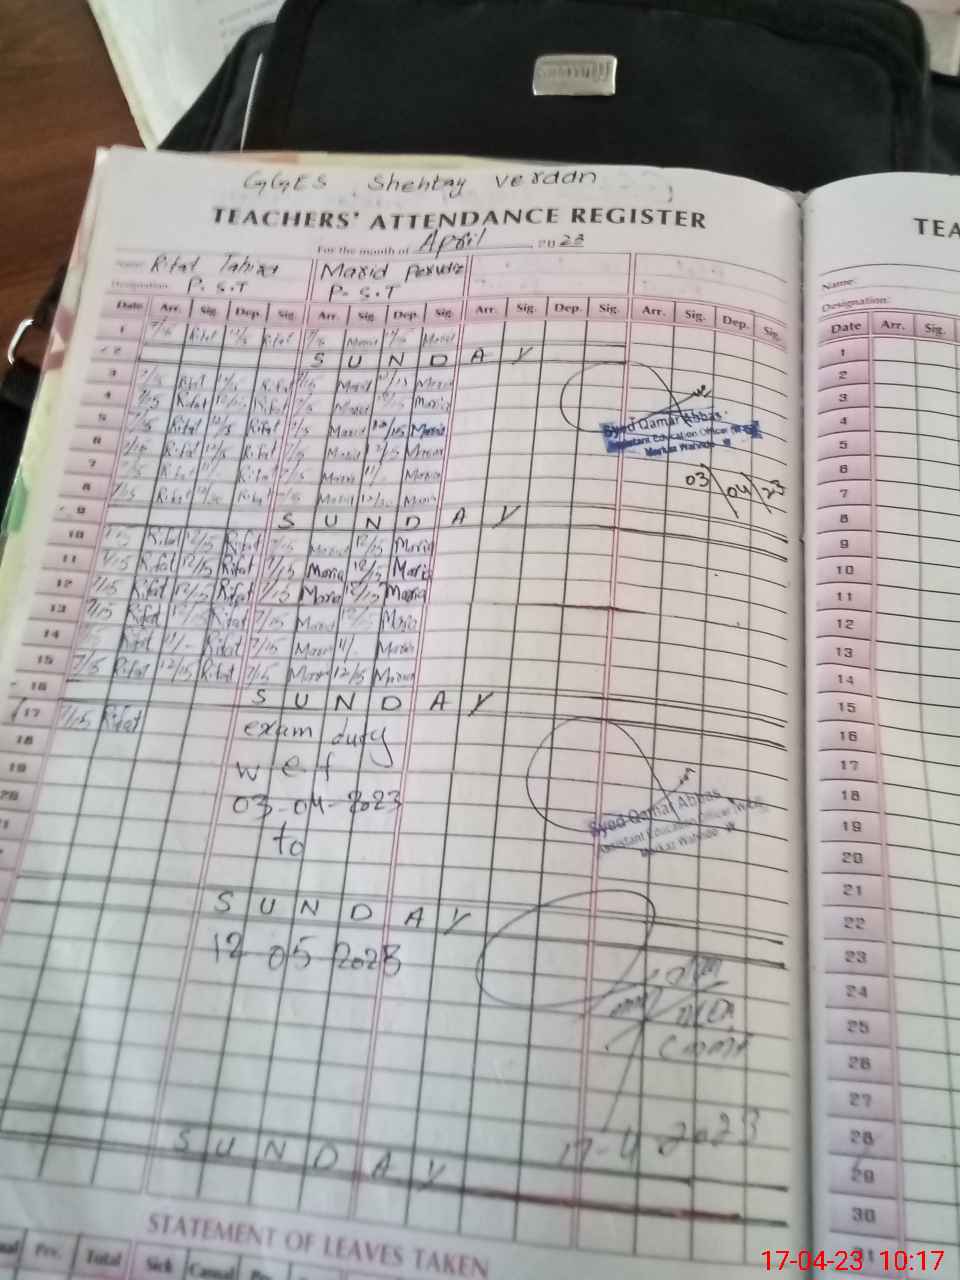 GGES Shehtay verdan
TEACHERS' ATTENDANCE REGISTER
For the month of April 2023
Name: Rifat Tahira Maria Perveiz
Designation: P.S.T P.S.T
Date Arr. Sig. Dep. Sig. Arr. Sig. Dep. Sig. Arr. Sig. Dep. Sig. Arr. Sig. Dep. Sig.
1 7/15 Rifat 12/15 Rifat 7/15 Maria 12/15 Maria
2 SUNDAY
3 7/15 Rifat 12/15 Rifat 7/15 Maria 12/15 Maria
4 7/15 Rifat 12/15 Rifat 7/15 Maria 12/15 Maria
5 7/15 Rifat 12/15 Rifat 7/15 Maria 12/15 Maria
6 7/15 Rifat 12/15 Rifat 7/15 Maria 12/15 Maria
7 7/15 Rifat 11/- Rifat 7/15 Maria 11/- Maria
8 7/15 Rifat Rifat 7/15 Maria Maria
Syed Qamar Abbas
Assistant Education Officer
Markaz Wahndo
03/04/23
9 SUNDAY
10 7/15 Rifat 12/15 Rifat 7/15 Maria 12/15 Maria
11 7/15 Rifat 12/15 Rifat 7/15 Maria 12/15 Maria
12 7/15 Rifat 12/15 Rifat 7/15 Maria 12/15 Maria
13 7/15 Rifat 12/15 Rifat 7/15 Maria 12/15 Maria
14 Rifat 11/- Rifat 7/15 Maria 11/- Maria
15 7/15 Rifat 12/15 Rifat 7/15 Maria 12/15 Maria
16 SUNDAY
17 7/15 Rifat exam duty
18 w e f
19 03-04-2023
20 to
Syed Qamar Abbas
Assistant Education Officer
Markaz Wahndo
SUNDAY
12-05-2023
17-4-2023
SUNDAY
STATEMENT OF LEAVES TAKEN
Prv. Total Sick Casual Prv.
TEA
Name:
Designation:
Date Arr. Sig.
1
2
3
4
5
6
7
8
9
10
11
12
13
14
15
16
17
18
19
20
21
22
23
24
25
26
27
28
29
30
31
17-04-23 10:17